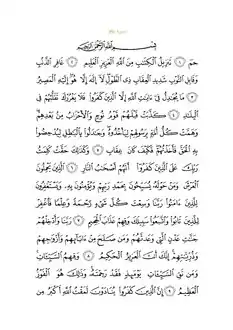 بِسْمِ ٱللَّهِ ٱلرَّحْمَٰنِ ٱلرَّحِيمِ
حمٓ ﴿١﴾ تَنزِيلُ ٱلْكِتَٰبِ مِنَ ٱللَّهِ ٱلْعَزِيزِ ٱلْعَلِيمِ ﴿٢﴾ غَافِرِ ٱلذَّنۢبِ
وَقَابِلِ ٱلتَّوْبِ شَدِيدِ ٱلْعِقَابِ ذِى ٱلطَّوْلِ لَآ إِلَٰهَ إِلَّا هُوَ إِلَيْهِ ٱلْمَصِيرُ
﴿٣﴾ مَا يُجَٰدِلُ فِىٓ ءَايَٰتِ ٱللَّهِ إِلَّا ٱلَّذِينَ كَفَرُوا۟ فَلَا يَغْرُرْكَ تَقَلُّبُهُمْ فِى
ٱلْبِلَٰدِ ﴿٤﴾ كَذَّبَتْ قَبْلَهُمْ قَوْمُ نُوحٍ وَٱلْأَحْزَابُ مِنۢ بَعْدِهِمْ
وَهَمَّتْ كُلُّ أُمَّةٍۭ بِرَسُولِهِمْ لِيَأْخُذُوهُ وَجَٰدَلُوا۟ بِٱلْبَٰطِلِ لِيُدْحِضُوا۟
بِهِ ٱلْحَقَّ فَأَخَذْتُهُمْ فَكَيْفَ كَانَ عِقَابِ ﴿٥﴾ وَكَذَٰلِكَ حَقَّتْ كَلِمَتُ
رَبِّكَ عَلَى ٱلَّذِينَ كَفَرُوٓا۟ أَنَّهُمْ أَصْحَٰبُ ٱلنَّارِ ﴿٦﴾ ٱلَّذِينَ يَحْمِلُونَ
ٱلْعَرْشَ وَمَنْ حَوْلَهُۥ يُسَبِّحُونَ بِحَمْدِ رَبِّهِمْ وَيُؤْمِنُونَ بِهِۦ وَيَسْتَغْفِرُونَ
لِلَّذِينَ ءَامَنُوا۟ رَبَّنَا وَسِعْتَ كُلَّ شَىْءٍ رَّحْمَةً وَعِلْمًا فَٱغْفِرْ
لِلَّذِينَ تَابُوا۟ وَٱتَّبَعُوا۟ سَبِيلَكَ وَقِهِمْ عَذَابَ ٱلْجَحِيمِ ﴿٧﴾ رَبَّنَا وَأَدْخِلْهُمْ
جَنَّٰتِ عَدْنٍ ٱلَّتِى وَعَدتَّهُمْ وَمَن صَلَحَ مِنْ ءَابَآئِهِمْ وَأَزْوَٰجِهِمْ
وَذُرِّيَّٰتِهِمْ إِنَّكَ أَنتَ ٱلْعَزِيزُ ٱلْحَكِيمُ ﴿٨﴾ وَقِهِمُ ٱلسَّيِّـَٔاتِ
وَمَن تَقِ ٱلسَّيِّـَٔاتِ يَوْمَئِذٍ فَقَدْ رَحِمْتَهُۥ وَذَٰلِكَ هُوَ ٱلْفَوْزُ
ٱلْعَظِيمُ ﴿٩﴾ إِنَّ ٱلَّذِينَ كَفَرُوا۟ يُنَادَوْنَ لَمَقْتُ ٱللَّهِ أَكْبَرُ مِن